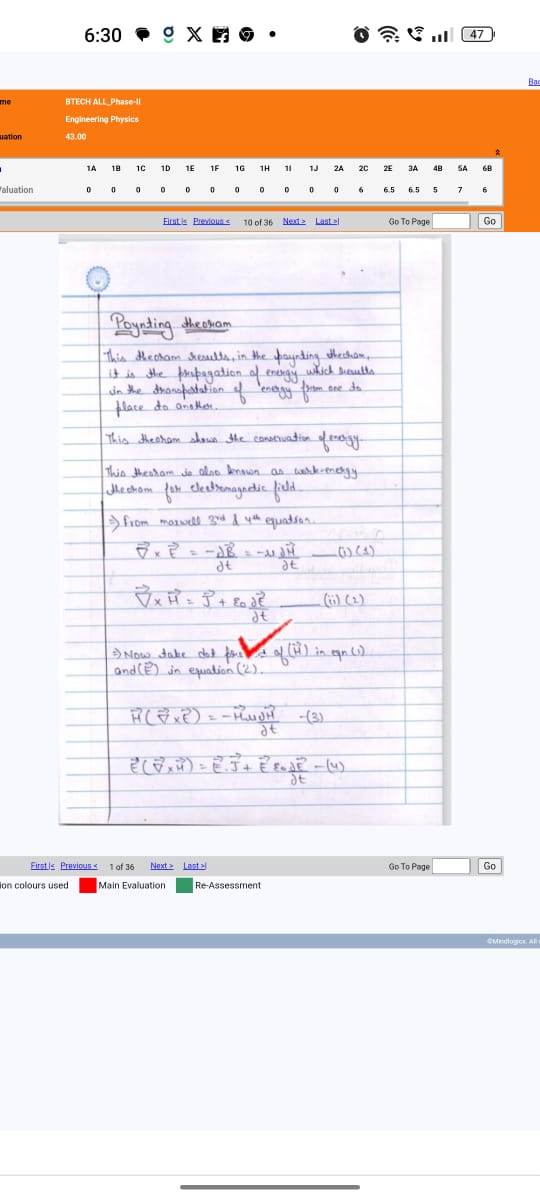 6:30
47
Bac
me
BTECH ALL_Phase-II
Engineering Physics
uation
43.00
1A 1B 1C 1D 1E 1F 1G 1H 1I 1J 2A 2C 2E 3A 4B 5A 6B
aluation 0 0 0 0 0 0 0 0 0 0 0 6 6.5 6.5 5 7 6
First |< Previous < 10 of 36 Next > Last >| Go To Page Go
Poynting theoram
This theoram results, in the poynting theoram,
it is the propagation of energy which results
in the transportation of energy from one to
place to another.
This theoram shows the conservation of energy.
This theoram is also known as work-energy
theorem for electromagnetic field.
⇒ from maxwell 3rd & 4th equation.
∇⃗ × E⃗ = -∂B⃗/∂t = -μ ∂H⃗/∂t — (i) (1)
∇⃗ × H⃗ = J⃗ + ε₀ ∂E⃗/∂t — (ii) (2)
⇒ Now take dot of (H⃗) in eqn (1)
and (E⃗) in equation (2).
H⃗(∇⃗ × E⃗) = -H⃗μ ∂H⃗/∂t -(3)
E⃗(∇⃗ × H⃗) = E⃗.J⃗ + E⃗ ε₀ ∂E⃗/∂t -(4)
First |< Previous < 1 of 36 Next > Last >| Go To Page Go
ion colours used Main Evaluation Re-Assessment
©Mindlogicx. All